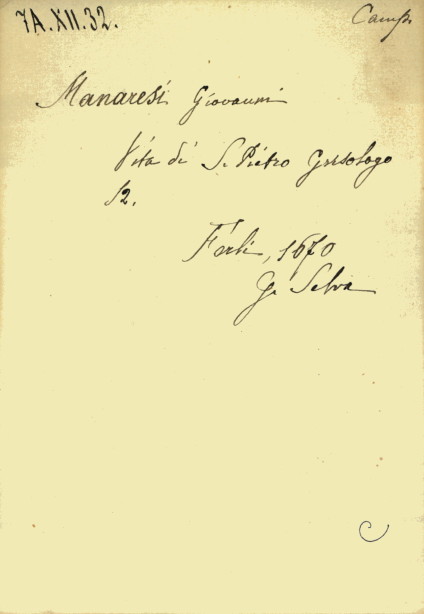 7A.XII.32.
Camp.
Manaresi Giovanni
Vita di S. Pietro Grisologo
12.
Forlì, 1670
G. Selva